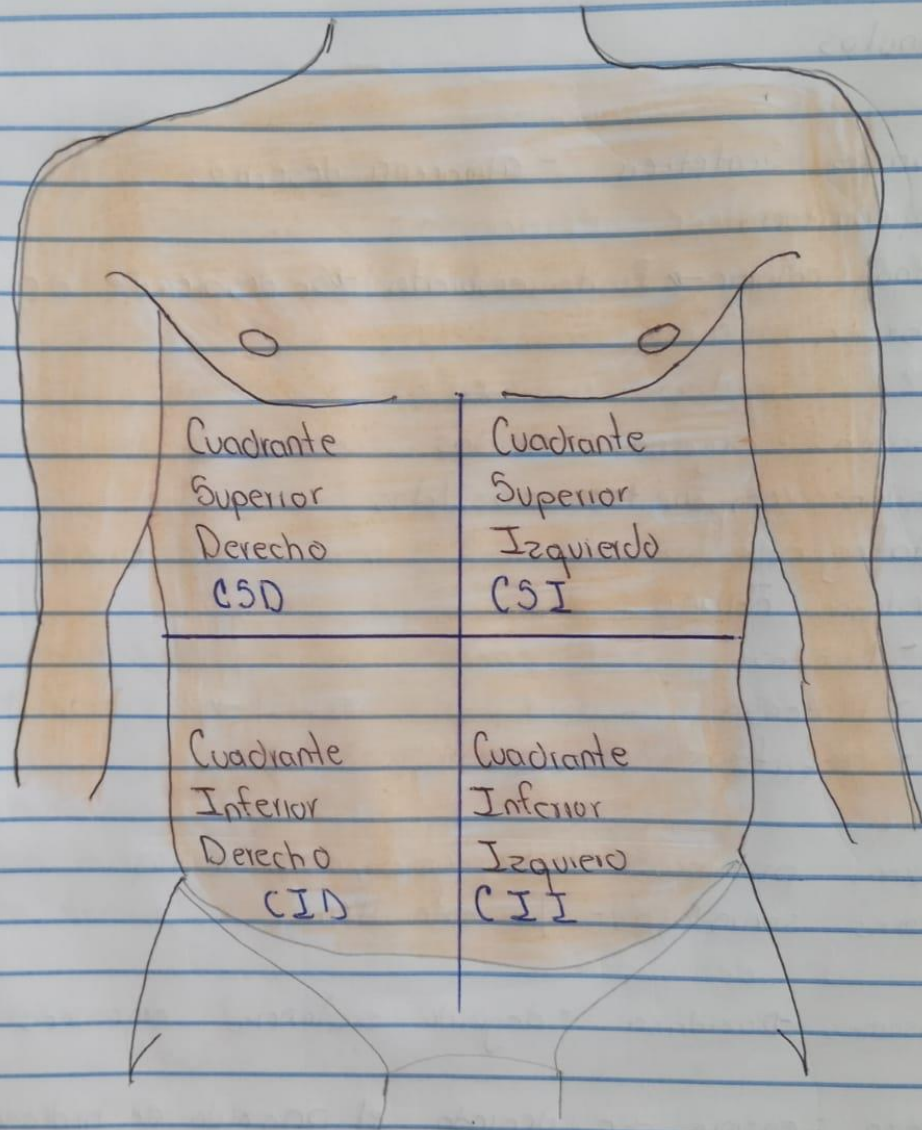 Cuadrante
Superior
Derecho
CSD
Cuadrante
Superior
Izquierdo
CSI
Cuadrante
Inferior
Derecho
CID
Cuadrante
Inferior
Izquiero
CII